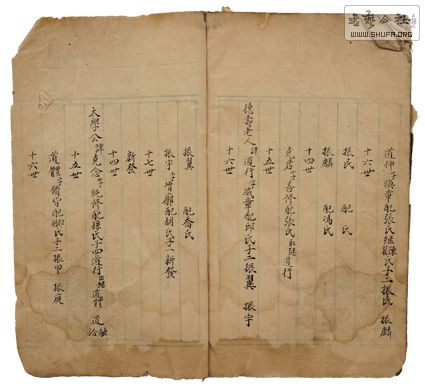 書法公社
WWW.SHUFA.ORG
道伸字煥章配張氏繼陳氏子三振民 振麟
十六世
振民 配 氏
振麟 配馮氏
十四世
克唐字善修配張氏 道行
十五世
德壽老人諱道行字咸章配邱氏子三振翼 振宇
十六世
振翼 配喬氏
振宇字增廓配胡氏子一新發
十七世
新發
十四世
大學公諱克念字純修配孫氏子四道行 道體 道
十五世
道體字備宮配鄭氏子二振甲 振庚
十六世